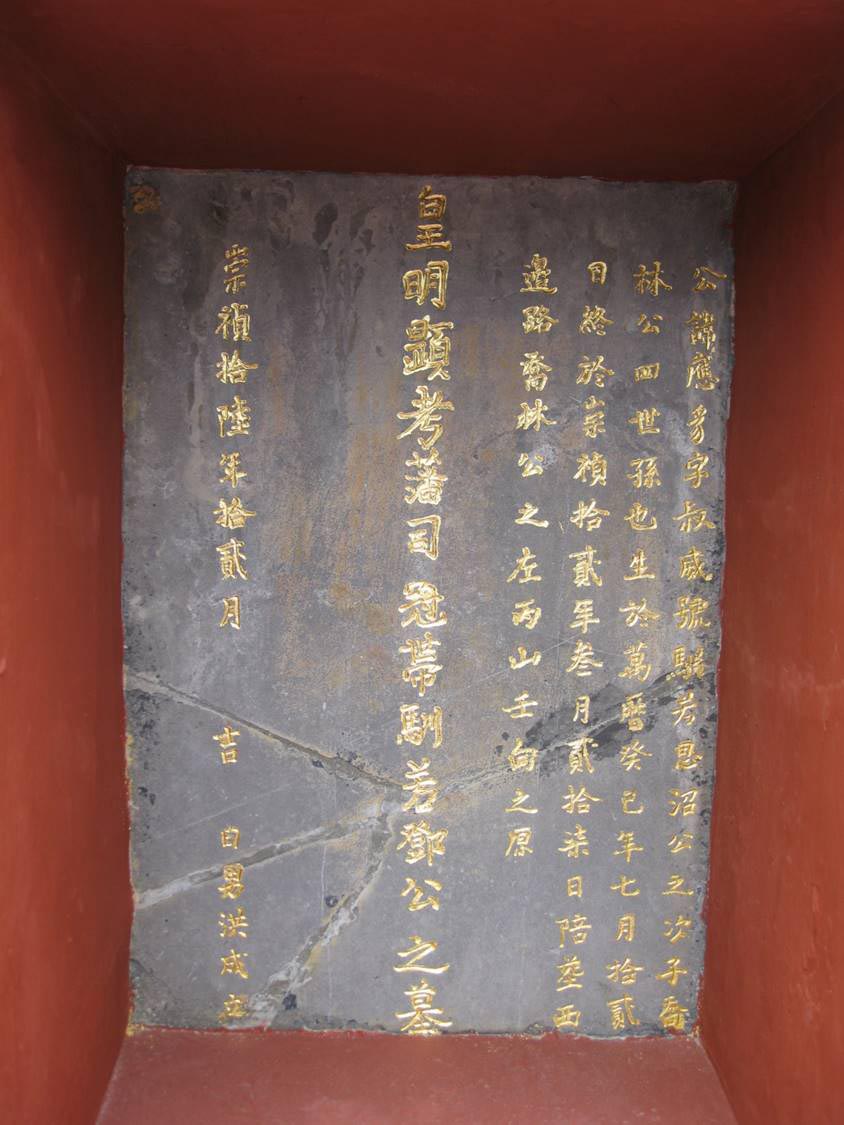 公諱應豸字叔威號馴若思沼公之次子喬
林公四世孫也生於萬曆癸巳年七月拾貳
日終於崇禎拾貳年叁月貳拾柒日陪塟西
邉路喬林公之左丙山壬向之原
皇明顯考藩司冠帶馴若鄧公之墓
崇禎拾陸年拾貳月 吉 日男洪成立